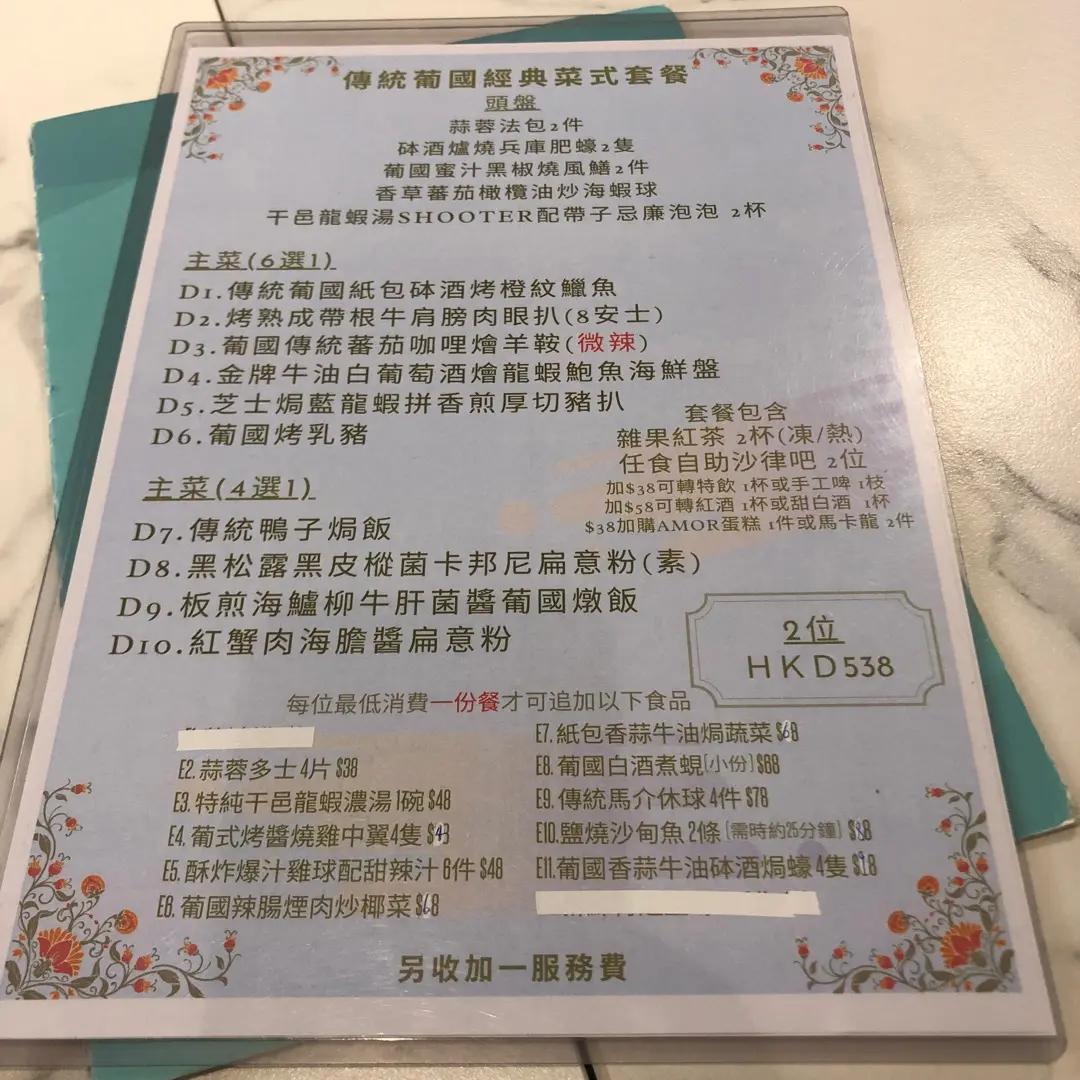 傳統葡國經典菜式套餐
頭盤
蒜蓉法包2件
砵酒爐燒兵庫肥蠔2隻
葡國蜜汁黑椒燒風鱔2件
香草蕃茄橄欖油炒海蝦球
干邑龍蝦湯SHOOTER配帶子忌廉泡泡 2杯
主菜(6選1)
D1.傳統葡國紙包砵酒烤橙紋鱲魚
D2.烤熟成帶根牛肩膀肉眼扒(8安士)
D3.葡國傳統蕃茄咖哩燴羊鞍(微辣)
D4.金牌牛油白葡萄酒燴龍蝦鮑魚海鮮盤
D5.芝士焗藍龍蝦拼香煎厚切豬扒
D6.葡國烤乳豬
套餐包含
雜果紅茶 2杯(凍/熱)
任食自助沙律吧 2位
加$38可轉特飲 1杯或手工啤 1枝
加$58可轉紅酒 1杯或甜白酒 1杯
$38加購AMOR蛋糕 1件或馬卡龍 2件
主菜(4選1)
D7.傳統鴨子焗飯
D8.黑松露黑皮樅菌卡邦尼扁意粉(素)
D9.板煎海鱸柳牛肝菌醬葡國燉飯
D10.紅蟹肉海膽醬扁意粉
2位
HKD538
每位最低消費一份餐才可追加以下食品
E2.蒜蓉多士4片$38
E3.特純干邑龍蝦濃湯1碗$48
E4.葡式烤醬燒雞中翼4隻
E5.酥炸爆汁雞球配甜辣汁6件$48
E6.葡國辣腸煙肉炒椰菜$68
E7.紙包香蒜牛油焗蔬菜$68
E8.葡國白酒煮蜆(小份)$88
E9.傳統馬介休球4件$78
E10.鹽燒沙甸魚2條(需時約25分鐘)
E11.葡國香蒜牛油砵酒焗蠔4隻
另收加一服務費